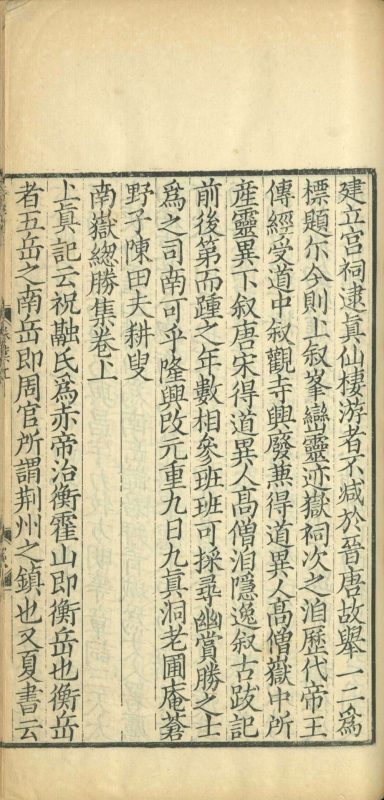 建立宮祠逮真仙棲游者不減於晉唐故舉一二為
標題尒今則上叙峯巒靈迹嶽祠次之洎歷代帝王
傳經受道中叙觀寺興廢兼得道異人髙僧嶽中所
産靈異下叙唐宋得道異人髙僧洎隱逸叙古跋記
前後第而踵之年數相參班班可採尋幽賞勝之士
為之司南可乎隆興改元重九日九真洞老圃庵蒼
野子陳田夫耕叟
南嶽緫勝集卷上
上真記云祝融氏為赤帝治衡霍山即衡岳也衡岳
者五岳之南岳即周官所謂荆州之鎮也又夏書云